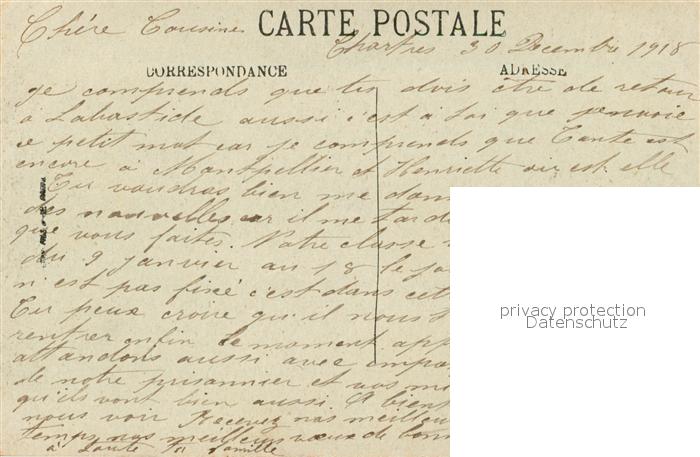 CARTE POSTALE
Chère Cousine
Chartres 30 Decembre 1918
CORRESPONDANCE
ADRESSE
je comprends que tu dois être de retour
a Labastide aussi c'est à toi que j'envoie
ce petit mot car je comprends que Tante est
encore à Montpellier et Henriette où est elle
Tu voudras bien me
des nouvelles car il me tarde
que vous faites. Notre classe
du 9 janvier au 18 le
n'est pas fixé c'est dans
Tu peux croire qu'il nous
rentrer enfin le moment
attandons aussi avec
de notre prisonnier et vos
qu'ils vont bien aussi. A
nous voir Recevez nos
temps nos meilleurs voeux de
à toute ta famille
privacy protection
Datenschutz